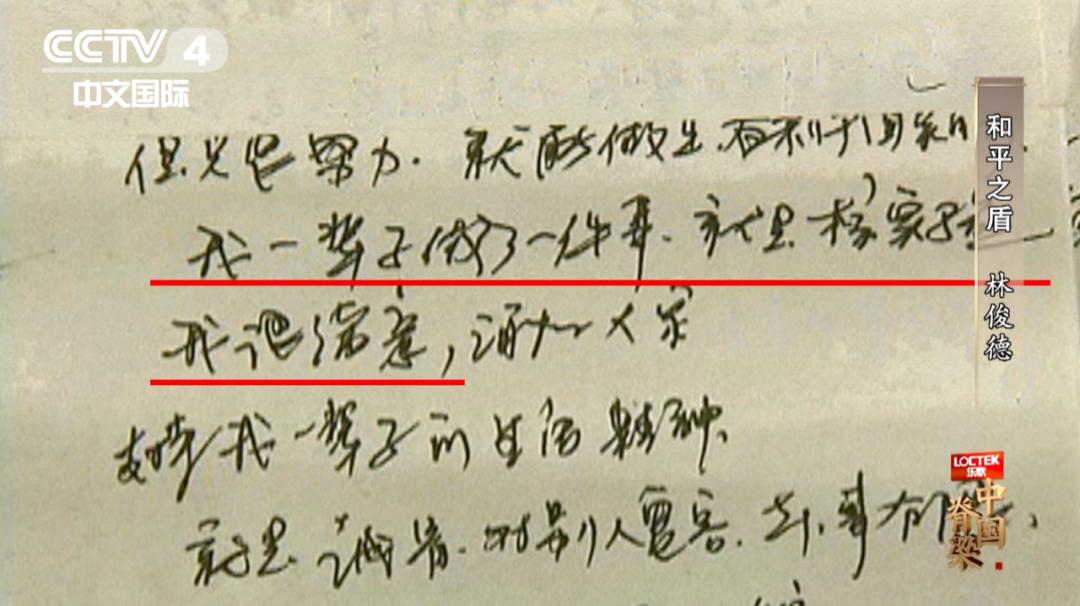 CCTV 4
中文国际
但只要努力.就能做出.有利于国家
我一辈子做了一件事.就是核实验
我很满意,
支持我一辈子的生活精神.
就是诚实.对别人宽容.
和平之盾 林俊德
LOCTEK
乐歌
中国
脊梁